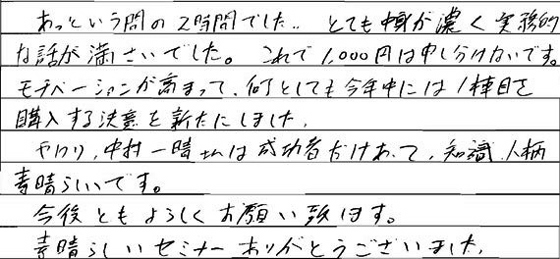 あっという間の2時間でした‥ とても中身が濃く実務的
な話が満さいでした。これで1,000円は申し分けないです。
モチベーションが高まって、何としても今年中には1棟目を
購入する決意を新たにしました。
やはり、中村一晴さんは成功者だけあって、知識、人柄
素晴らしいです。
今後ともよろしくお願い致します。
素晴らしいセミナーありがとうございました。